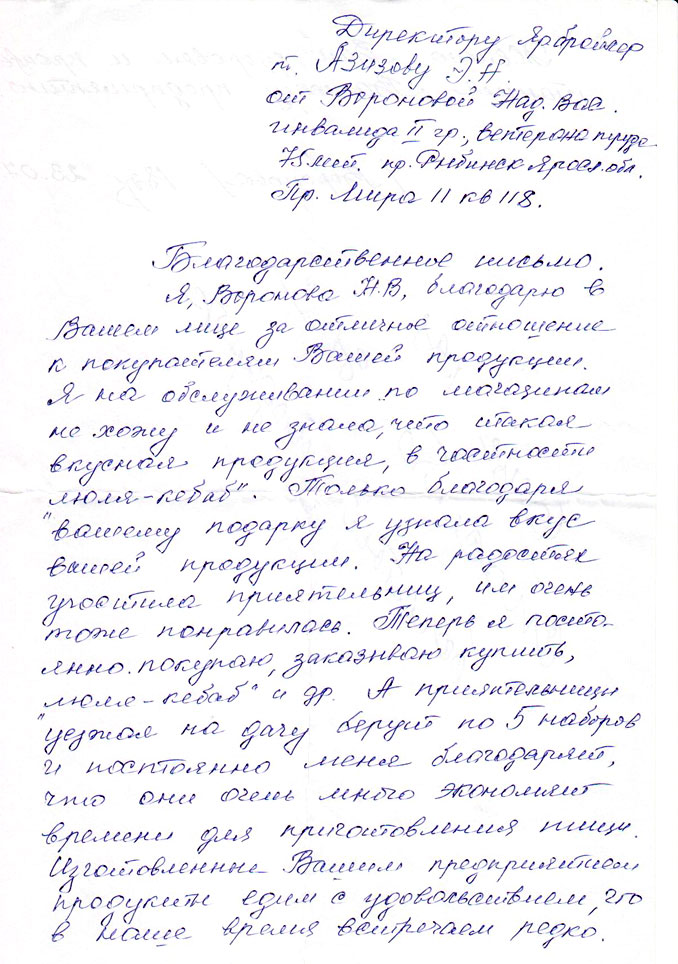 Директору Ярбройлер
т. Азизову Э.А.
от Вороновой Над. Вас.
инвалида II гр., ветерана труда
75 лет. гр. Рыбинск Яросл. обл.
Пр. Мира 11 кв 118.
Благодарственное письмо.
Я, Воронова Н.В, благодарю в
Вашем лице за отличное отношение
к покупателям Вашей продукции.
Я на обслуживании по магазинам
не хожу и не знала, что такая
вкусная продукция, в частности
люля-кебаб". Только благодаря
"вашему подарку я узнала вкус
вашей продукции. На радостях
угостила приятельниц, им очень
тоже понравилась. Теперь я посто-
янно покупаю, заказываю купить,
люля-кебаб" и др. А приятельницы
"уезжая на дачу берут по 5 наборов
и постоянно меня благодарят,
что они очень много экономят
времени для приготовления пищи.
Изготовленные Вашим предприятием
продукты едим с удовольствием, что
в наше время встречаем редко.